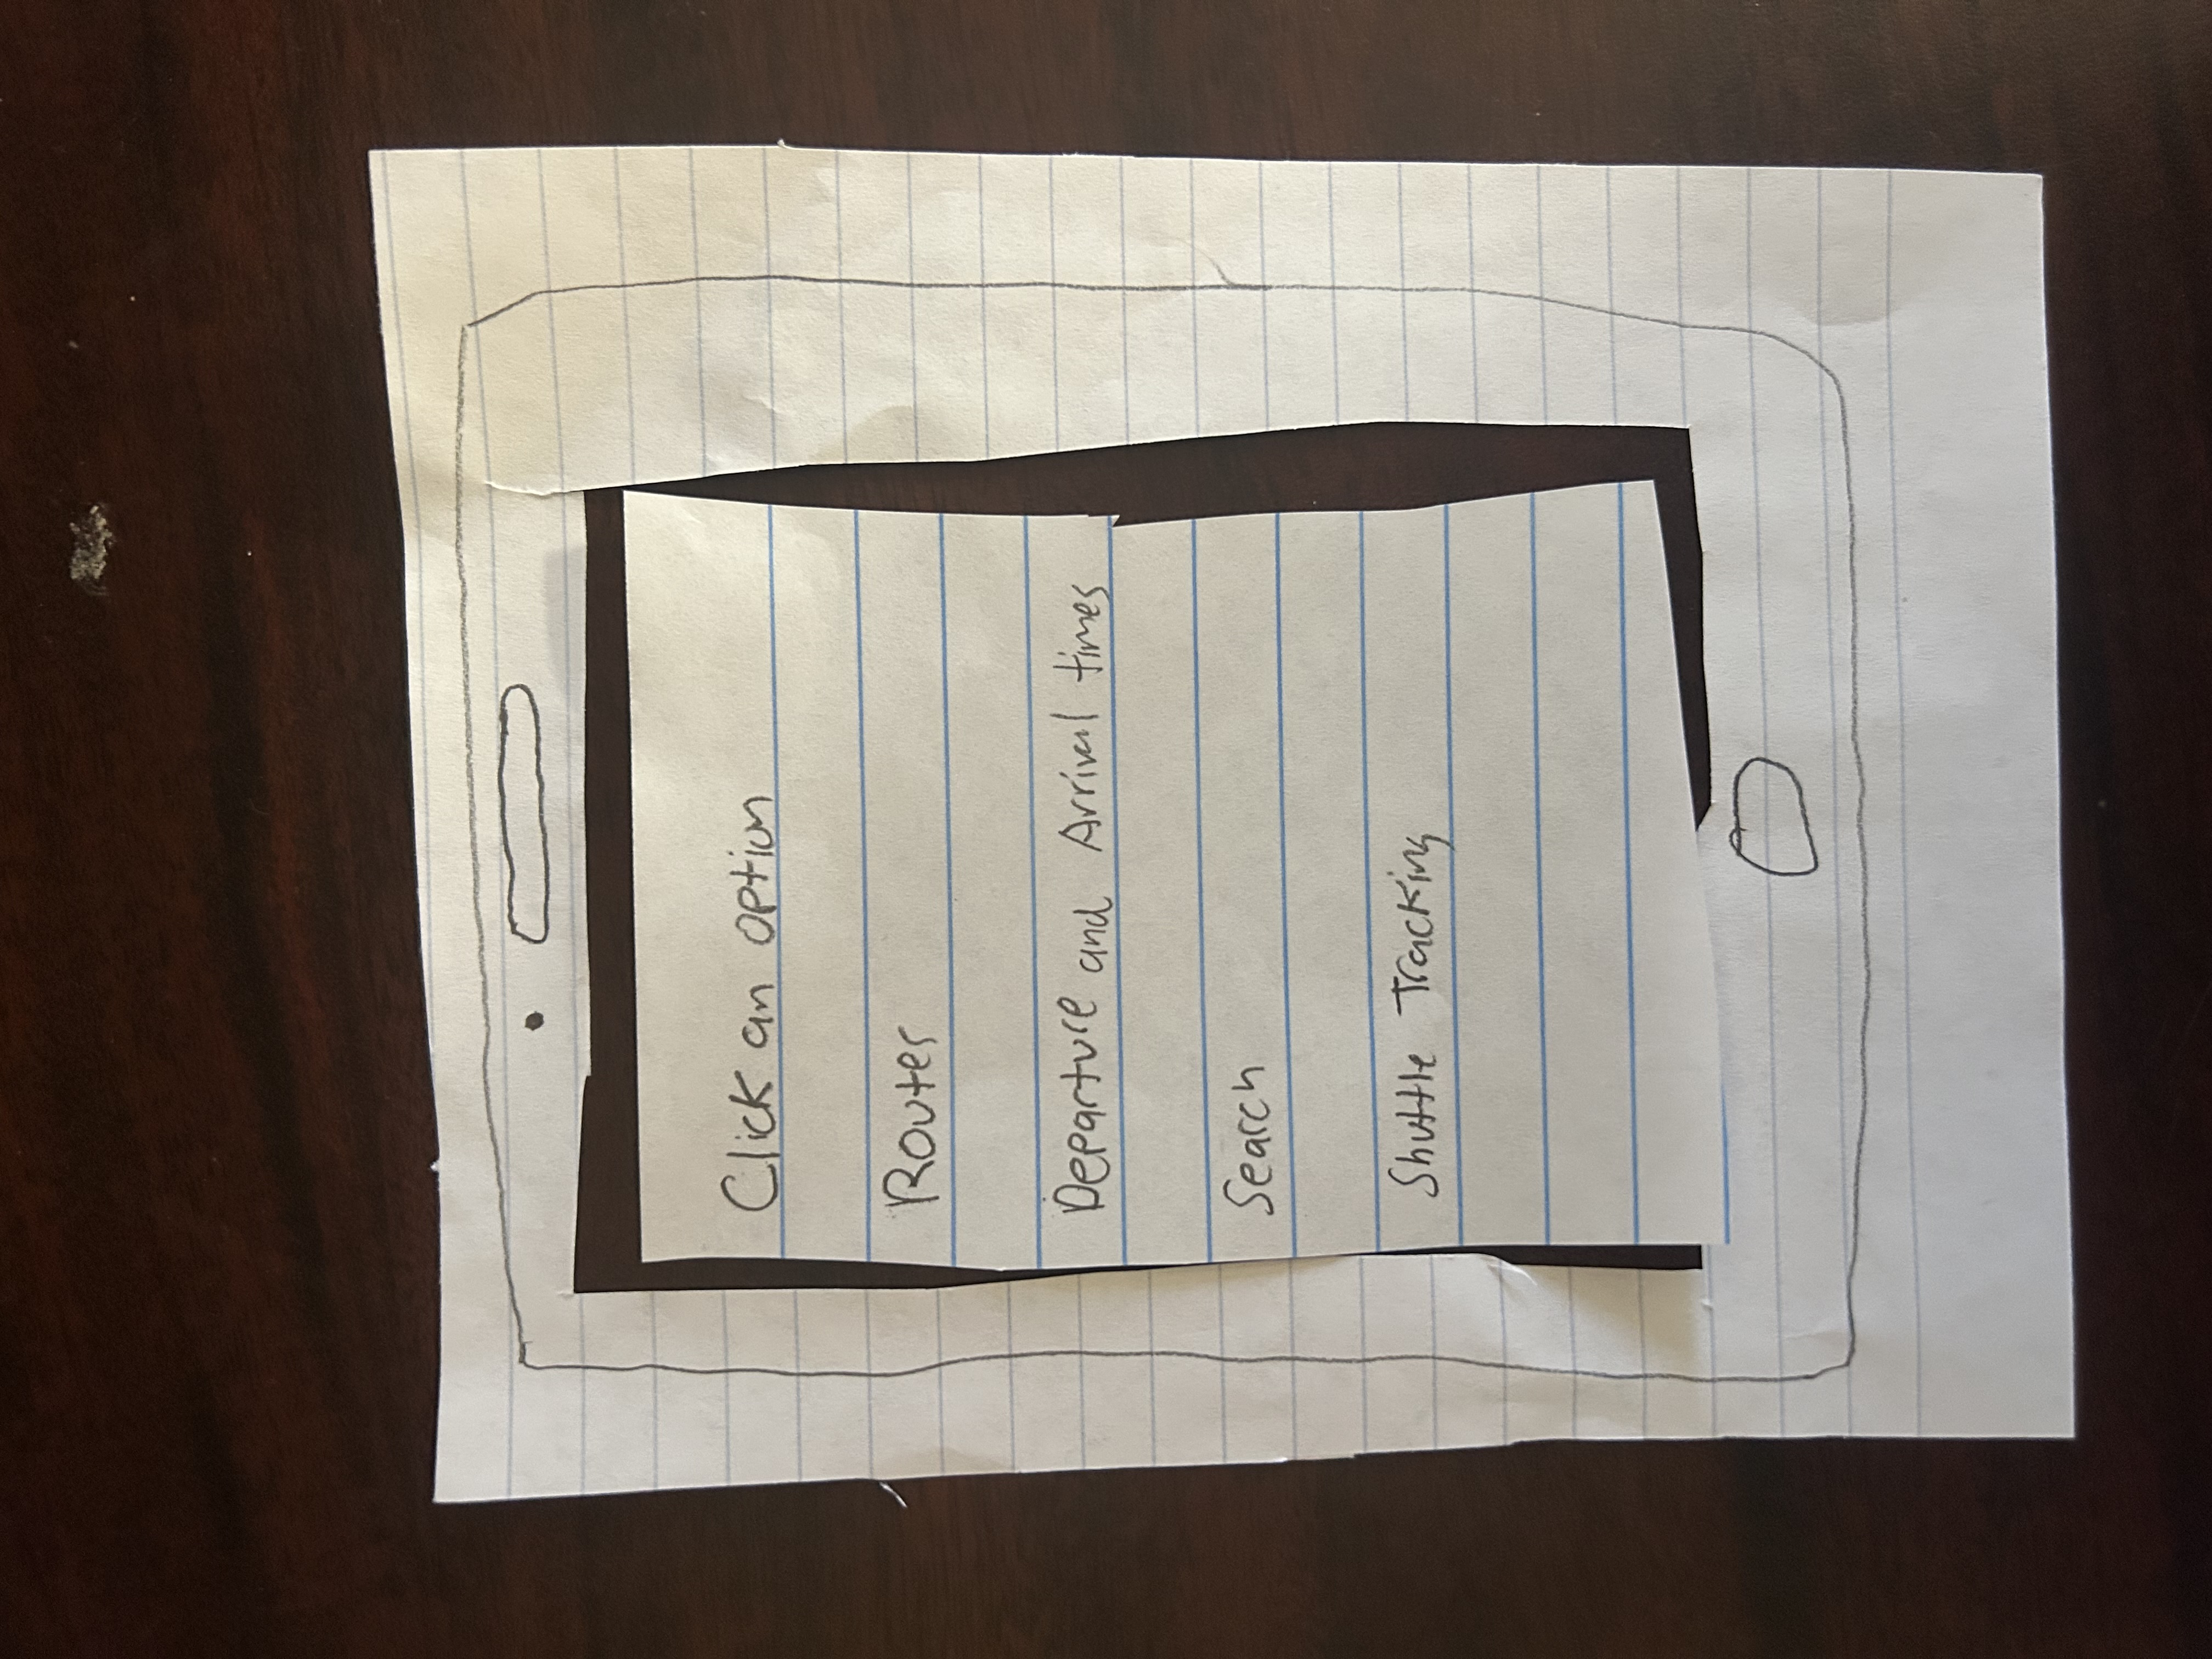 Click an option
Routes
Departure and Arrival times
Search
Shuttle Tracking